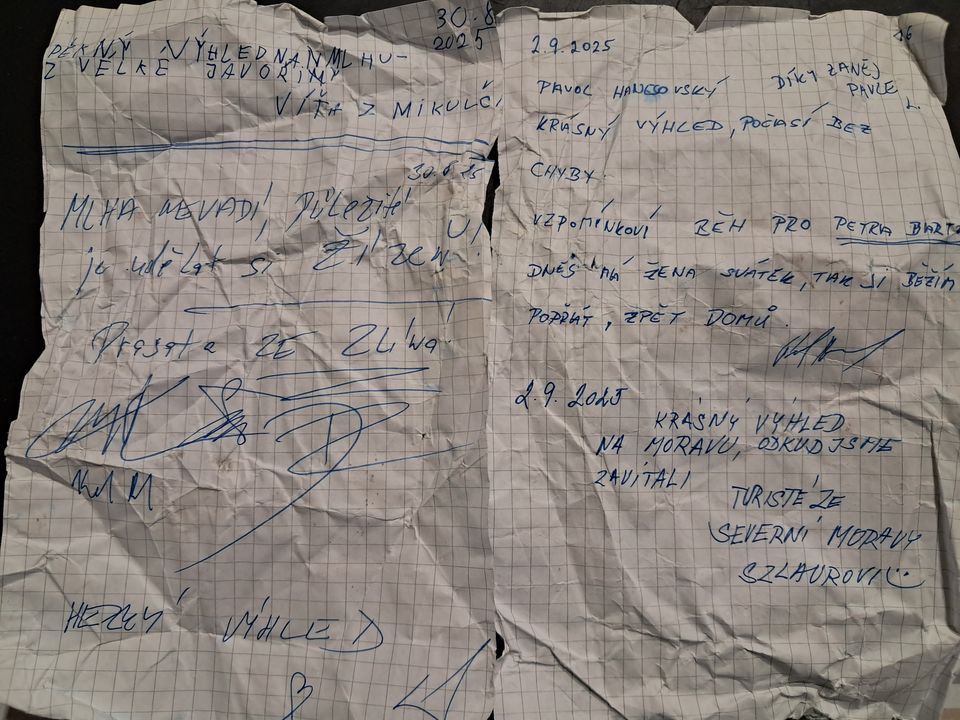 30.8
2025
PĚKNÝ VÝHLED NA MLHU -
Z VELKÉ JAVOŘINY
VÍŤA Z MIKULČI
30.8.25
MLHA NEVADÍ, Důležité
je udělat si
Prasata ZE Zlína!
HEZKÝ VÝHLED
16
2.9.2025
PAVOL HANESOVSKÝ
DÍKY ZANĚJ
PAVLE
L.
KRÁSNÝ VÝHLED, POČASÍ BEZ
CHYBY.
VZPOMÍNKOVÍ BĚH PRO PETRA
DNES MÁ ŽENA SVÁTEK, TAK JI BĚŽÍM
POPŘÁT, ZPĚT DOMŮ.
2.9.2025
KRÁSNÝ VÝHLED
NA MORAVU, ODKUD JSME
ZAVÍTALI
TURISTÉ ZE
SEVERNÍ MORAVY
SZLAUROVI